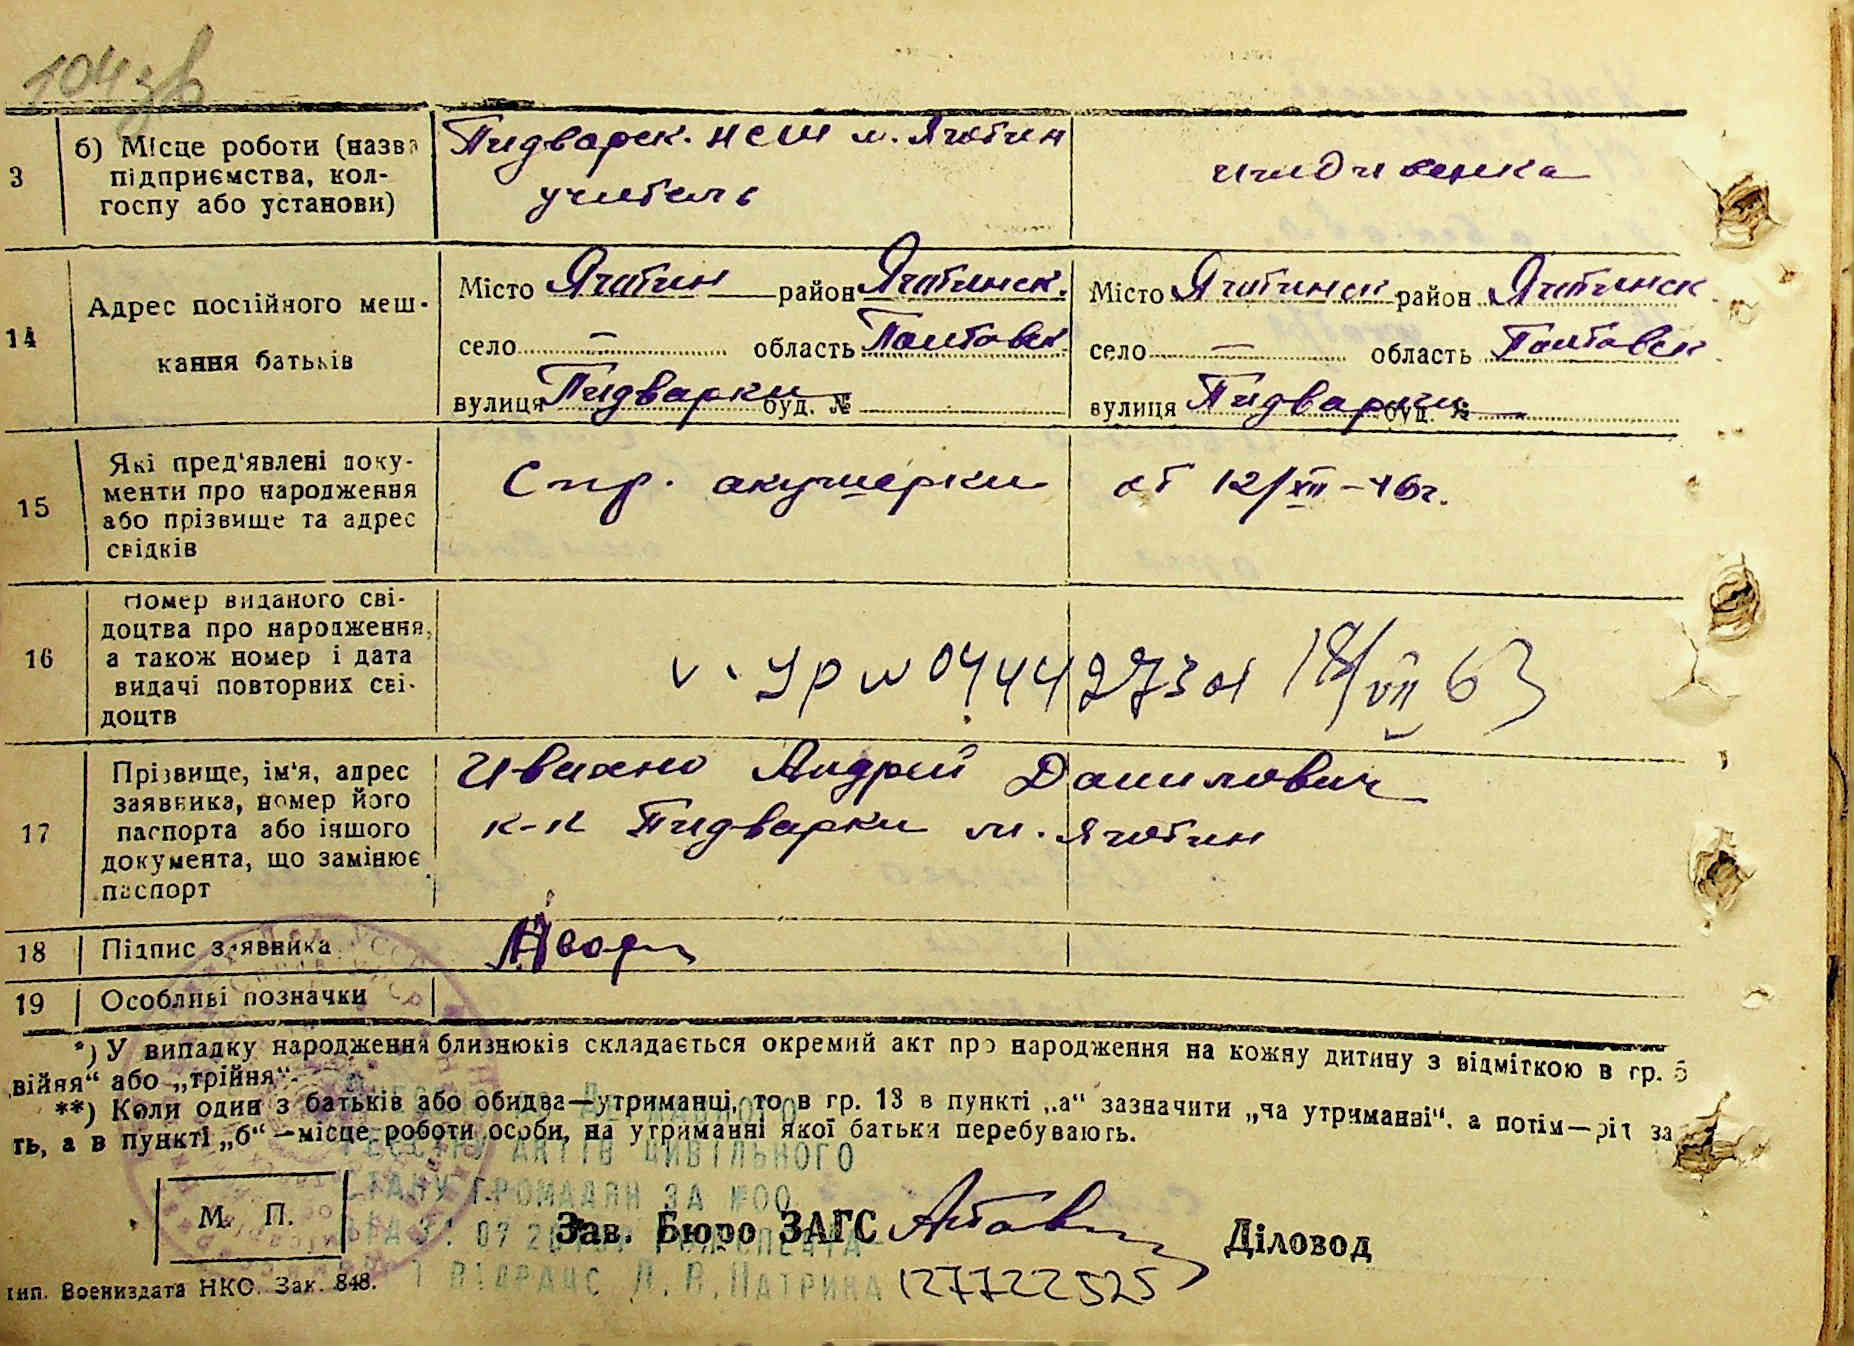 104 зв
3
б) Місце роботи (назва
підприємства, кол-
госпу або установи)
Пидварск. НСШ м. Яготин
учитель
иждивенка
14
Адрес постійного меш-
кання батьків
Місто Яготин район Яготинск.
село — область Полтавск
вулиця Пидварки буд. №
Місто Яготинск район Яготинск
село — область Полтавск
вулиця Пидварки буд. №
15
Які пред'явлені доку-
менти про народження
або прізвище та адрес
свідків
Спр. акушерки от 12/XII-46г.
16
Номер виданого сві-
доцтва про народження,
а також номер і дата
видачі повторних сві-
доцтв
УР № 0444273 от 18/VII 63
17
Прізвище, ім'я, адрес
заявника, номер його
паспорта або іншого
документа, що замінює
паспорт
Ивахно Андрей Данилович
к-к Пидварки м. Яготин
18
Підпис заявника
19
Особливі позначки
*) У випадку народження близнюків складається окремий акт про народження на кожну дитину з відміткою в гр. 5
війня“ або „трійня“.
**) Коли один з батьків або обидва—утриманці, то в гр. 13 в пункті „а“ зазначити „на утриманні“, а потім—рід за
ть, а в пункті „б“—місце роботи особи, на утриманні якої батьки перебувають.
АКТІВ ЦИВІЛЬНОГО
СТАНУ ГРОМАДЯН ЗА №00
М. П.
Зав. Бюро ЗАГС
Діловод
Л.В.ПАТРИКА
127722525
тип. Воениздата НКО. Зак. 848.